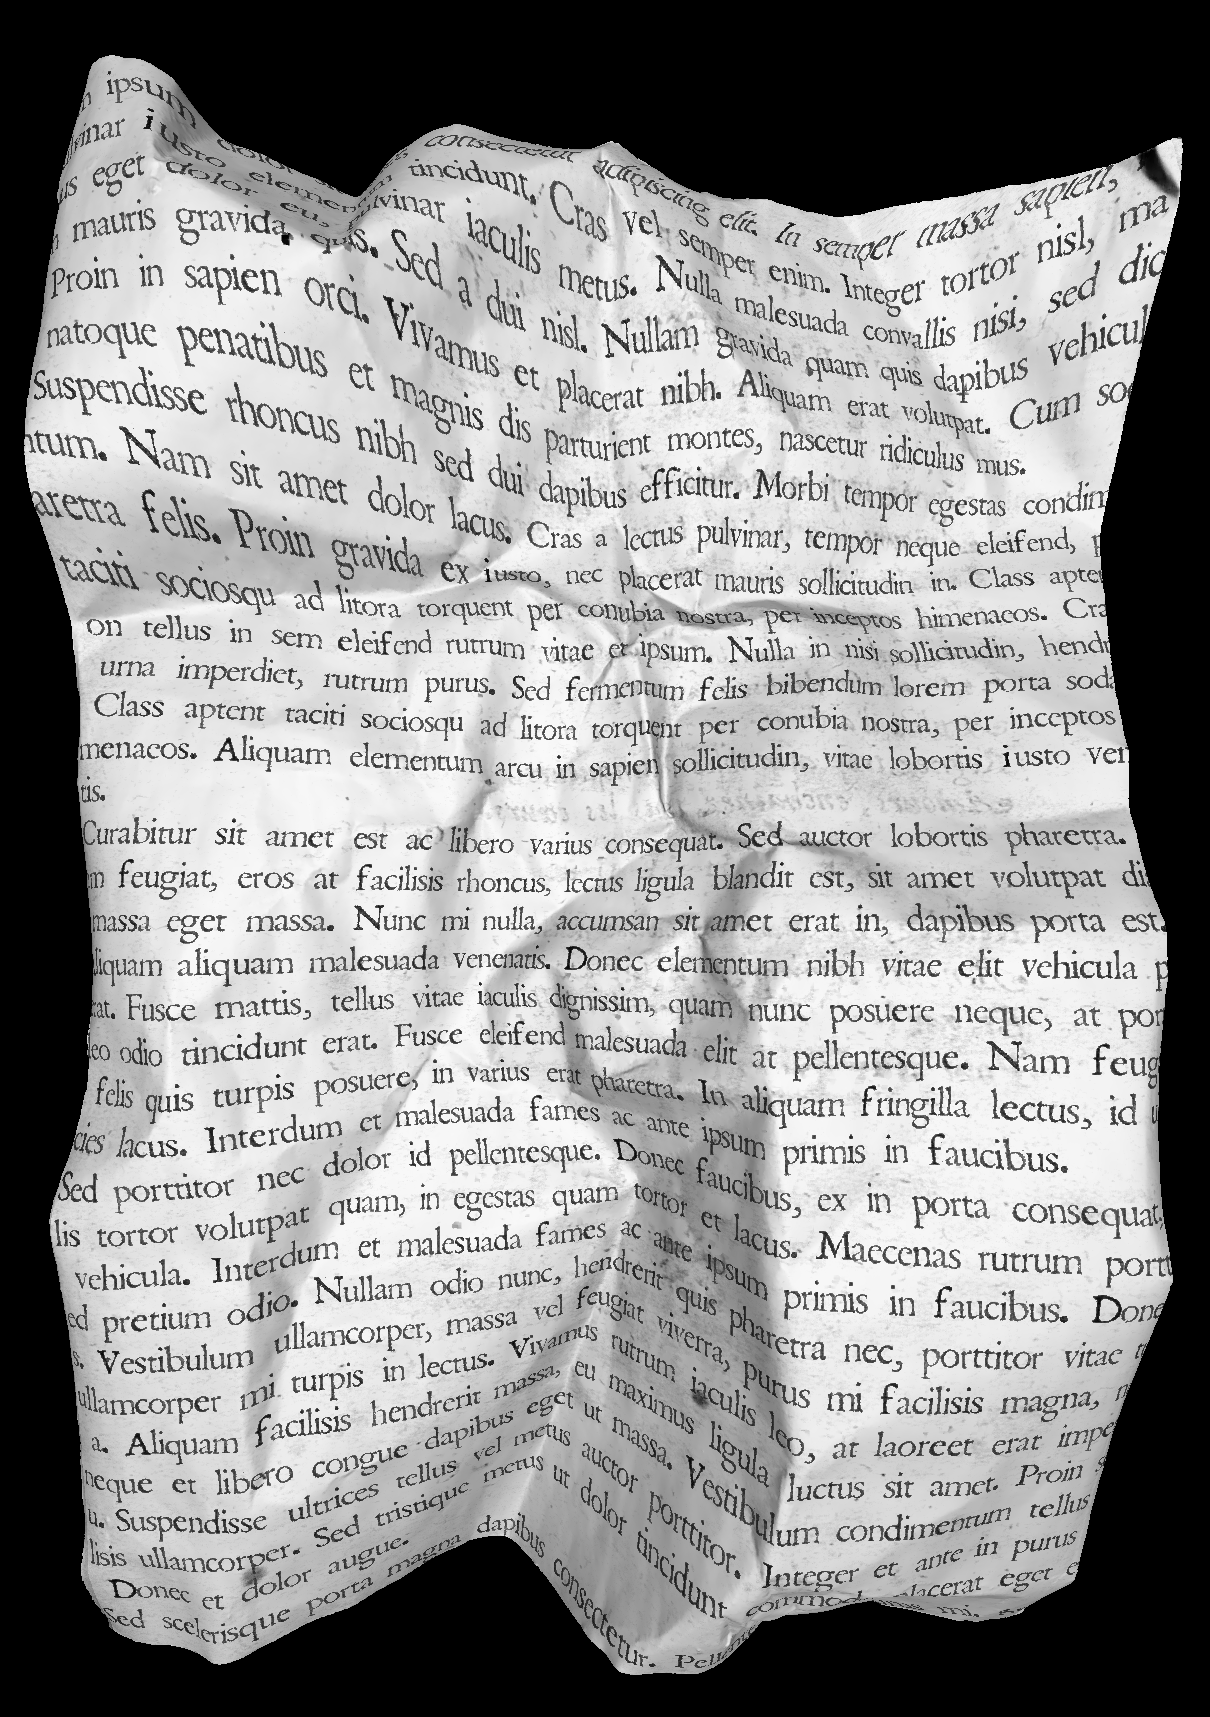 ipsum dolor consectetur adipiscing elit. In semper massa sapien,
vinar iusto elementum tincidunt. Cras vel semper enim. Integer tortor nisl, ma
us eget dolor eu, pulvinar iaculis metus. Nulla malesuada convallis nisi, sed dic
mauris gravida, quis. Sed a dui nisl. Nullam gravida quam quis dapibus vehicul
Proin in sapien orci. Vivamus et placerat nibh. Aliquam erat volutpat. Cum soc
natoque penatibus et magnis dis parturient montes, nascetur ridiculus mus.
Suspendisse rhoncus nibh sed dui dapibus efficitur. Morbi tempor egestas condim
ntum. Nam sit amet dolor lacus. Cras a lectus pulvinar, tempor neque eleifend, p
aretra felis. Proin gravida ex iusto, nec placerat mauris sollicitudin in. Class apten
taciti sociosqu ad litora torquent per conubia nostra, per inceptos himenaeos. Cra
on tellus in sem eleifend rutrum vitae et ipsum. Nulla in nisi sollicitudin, hendr
urna imperdiet, rutrum purus. Sed fermentum felis bibendum lorem porta soda
Class aptent taciti sociosqu ad litora torquent per conubia nostra, per inceptos
menaeos. Aliquam elementum arcu in sapien sollicitudin, vitae lobortis iusto ven
tis.
Curabitur sit amet est ac libero varius consequat. Sed auctor lobortis pharetra.
m feugiat, eros at facilisis rhoncus, lectus ligula blandit est, sit amet volutpat di
massa eget massa. Nunc mi nulla, accumsan sit amet erat in, dapibus porta est.
liquam aliquam malesuada venenatis. Donec elementum nibh vitae elit vehicula p
rat. Fusce mattis, tellus vitae iaculis dignissim, quam nunc posuere neque, at por
leo odio tincidunt erat. Fusce eleifend malesuada elit at pellentesque. Nam feug
felis quis turpis posuere, in varius erat pharetra. In aliquam fringilla lectus, id u
cies lacus. Interdum et malesuada fames ac ante ipsum primis in faucibus.
Sed porttitor nec dolor id pellentesque. Donec faucibus, ex in porta consequat,
lis tortor volutpat quam, in egestas quam tortor et lacus. Maecenas rutrum portt
vehicula. Interdum et malesuada fames ac ante ipsum primis in faucibus. Done
ed pretium odio. Nullam odio nunc, hendrerit quis pharetra nec, porttitor vitae
s. Vestibulum ullamcorper, massa vel feugiat viverra, purus mi facilisis magna,
ullamcorper mi turpis in lectus. Vivamus rutrum iaculis leo, at laoreet erat impe
a. Aliquam facilisis hendrerit massa, eu maximus ligula luctus sit amet. Proin
neque et libero congue dapibus eget ut massa. Vestibulum condimentum tellus
u. Suspendisse ultrices tellus vel metus auctor porttitor. Integer et ante in purus
lisis ullamcorper. Sed tristique metus ut dolor tincidunt commodo placerat eget e
Donec et dolor augue.
Sed scelerisque porta magna dapibus consectetur.